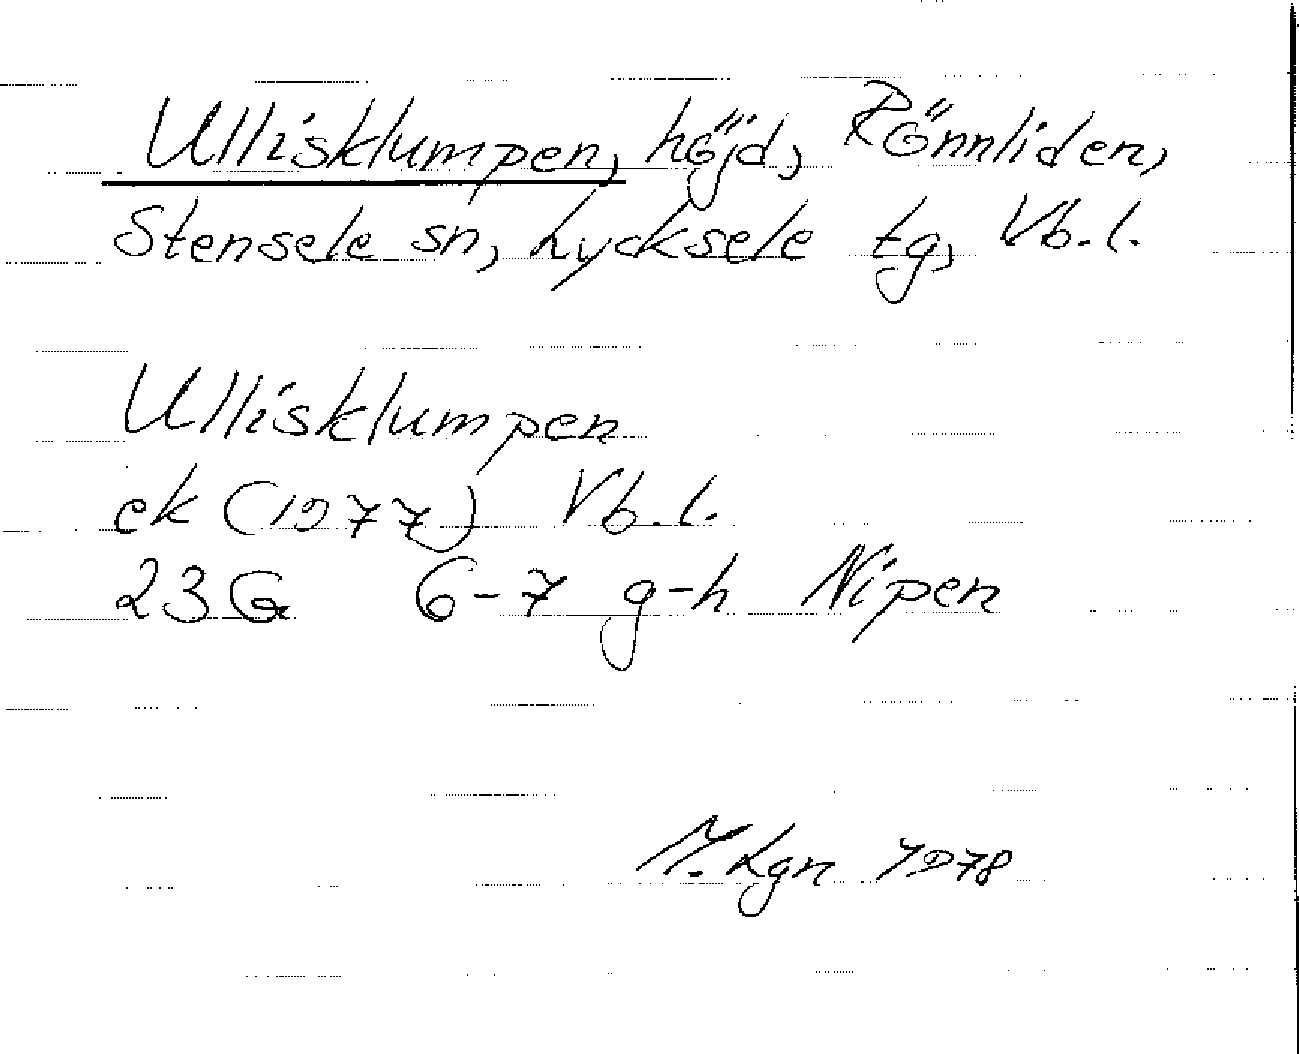 Ullisklumpen, höjd, Rönnliden,
Stensele sn, Lycksele tg, Vb.l.
Ullisklumpen
ek (1977) Vb.l.
23G 6-7 g-h Nipen
M. Lgn 1978